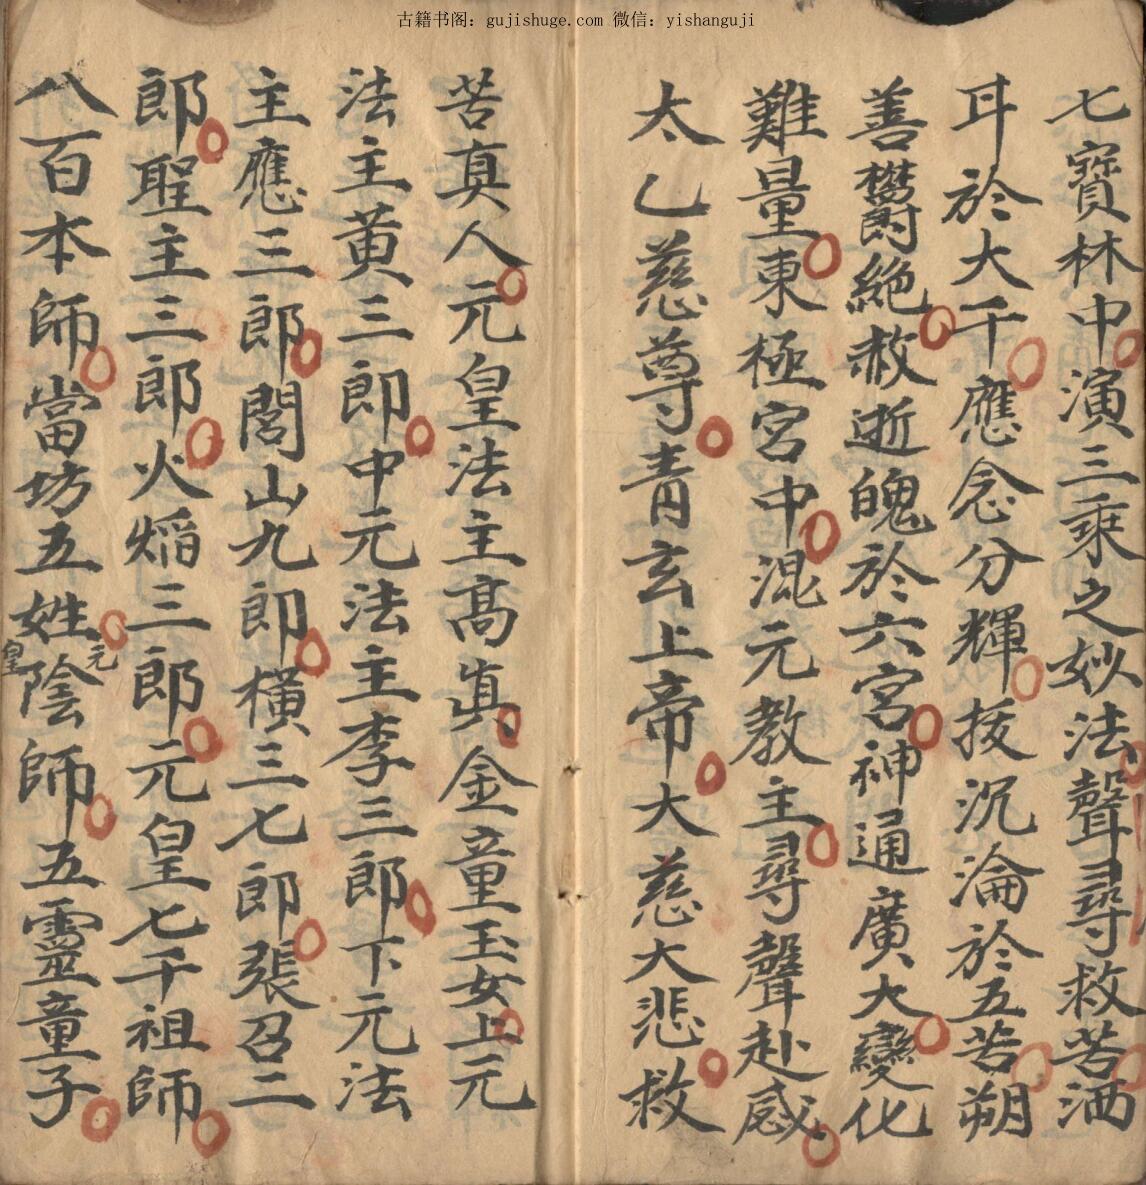 古籍书阁：gujishuge.com 微信：yishanguji
七寶林中演三乘之妙法聲尋救苦洒
耳於大千應念分輝拔沉淪於五苦朔
善欝絕赦逝魄於六宮神通廣大變化
難量東極宮中混元教主尋聲赴感
太乙慈尊青玄上帝大慈大悲救
苦真人元皇法主高真金童玉女上元
法主黄三郎中元法主李三郎下元法
主應三郎閭山九郎橫三七郎張召二
郎聖主三郎火熖三郎元皇七千祖師
八百本師當坊五姓元皇陰師五靈童子